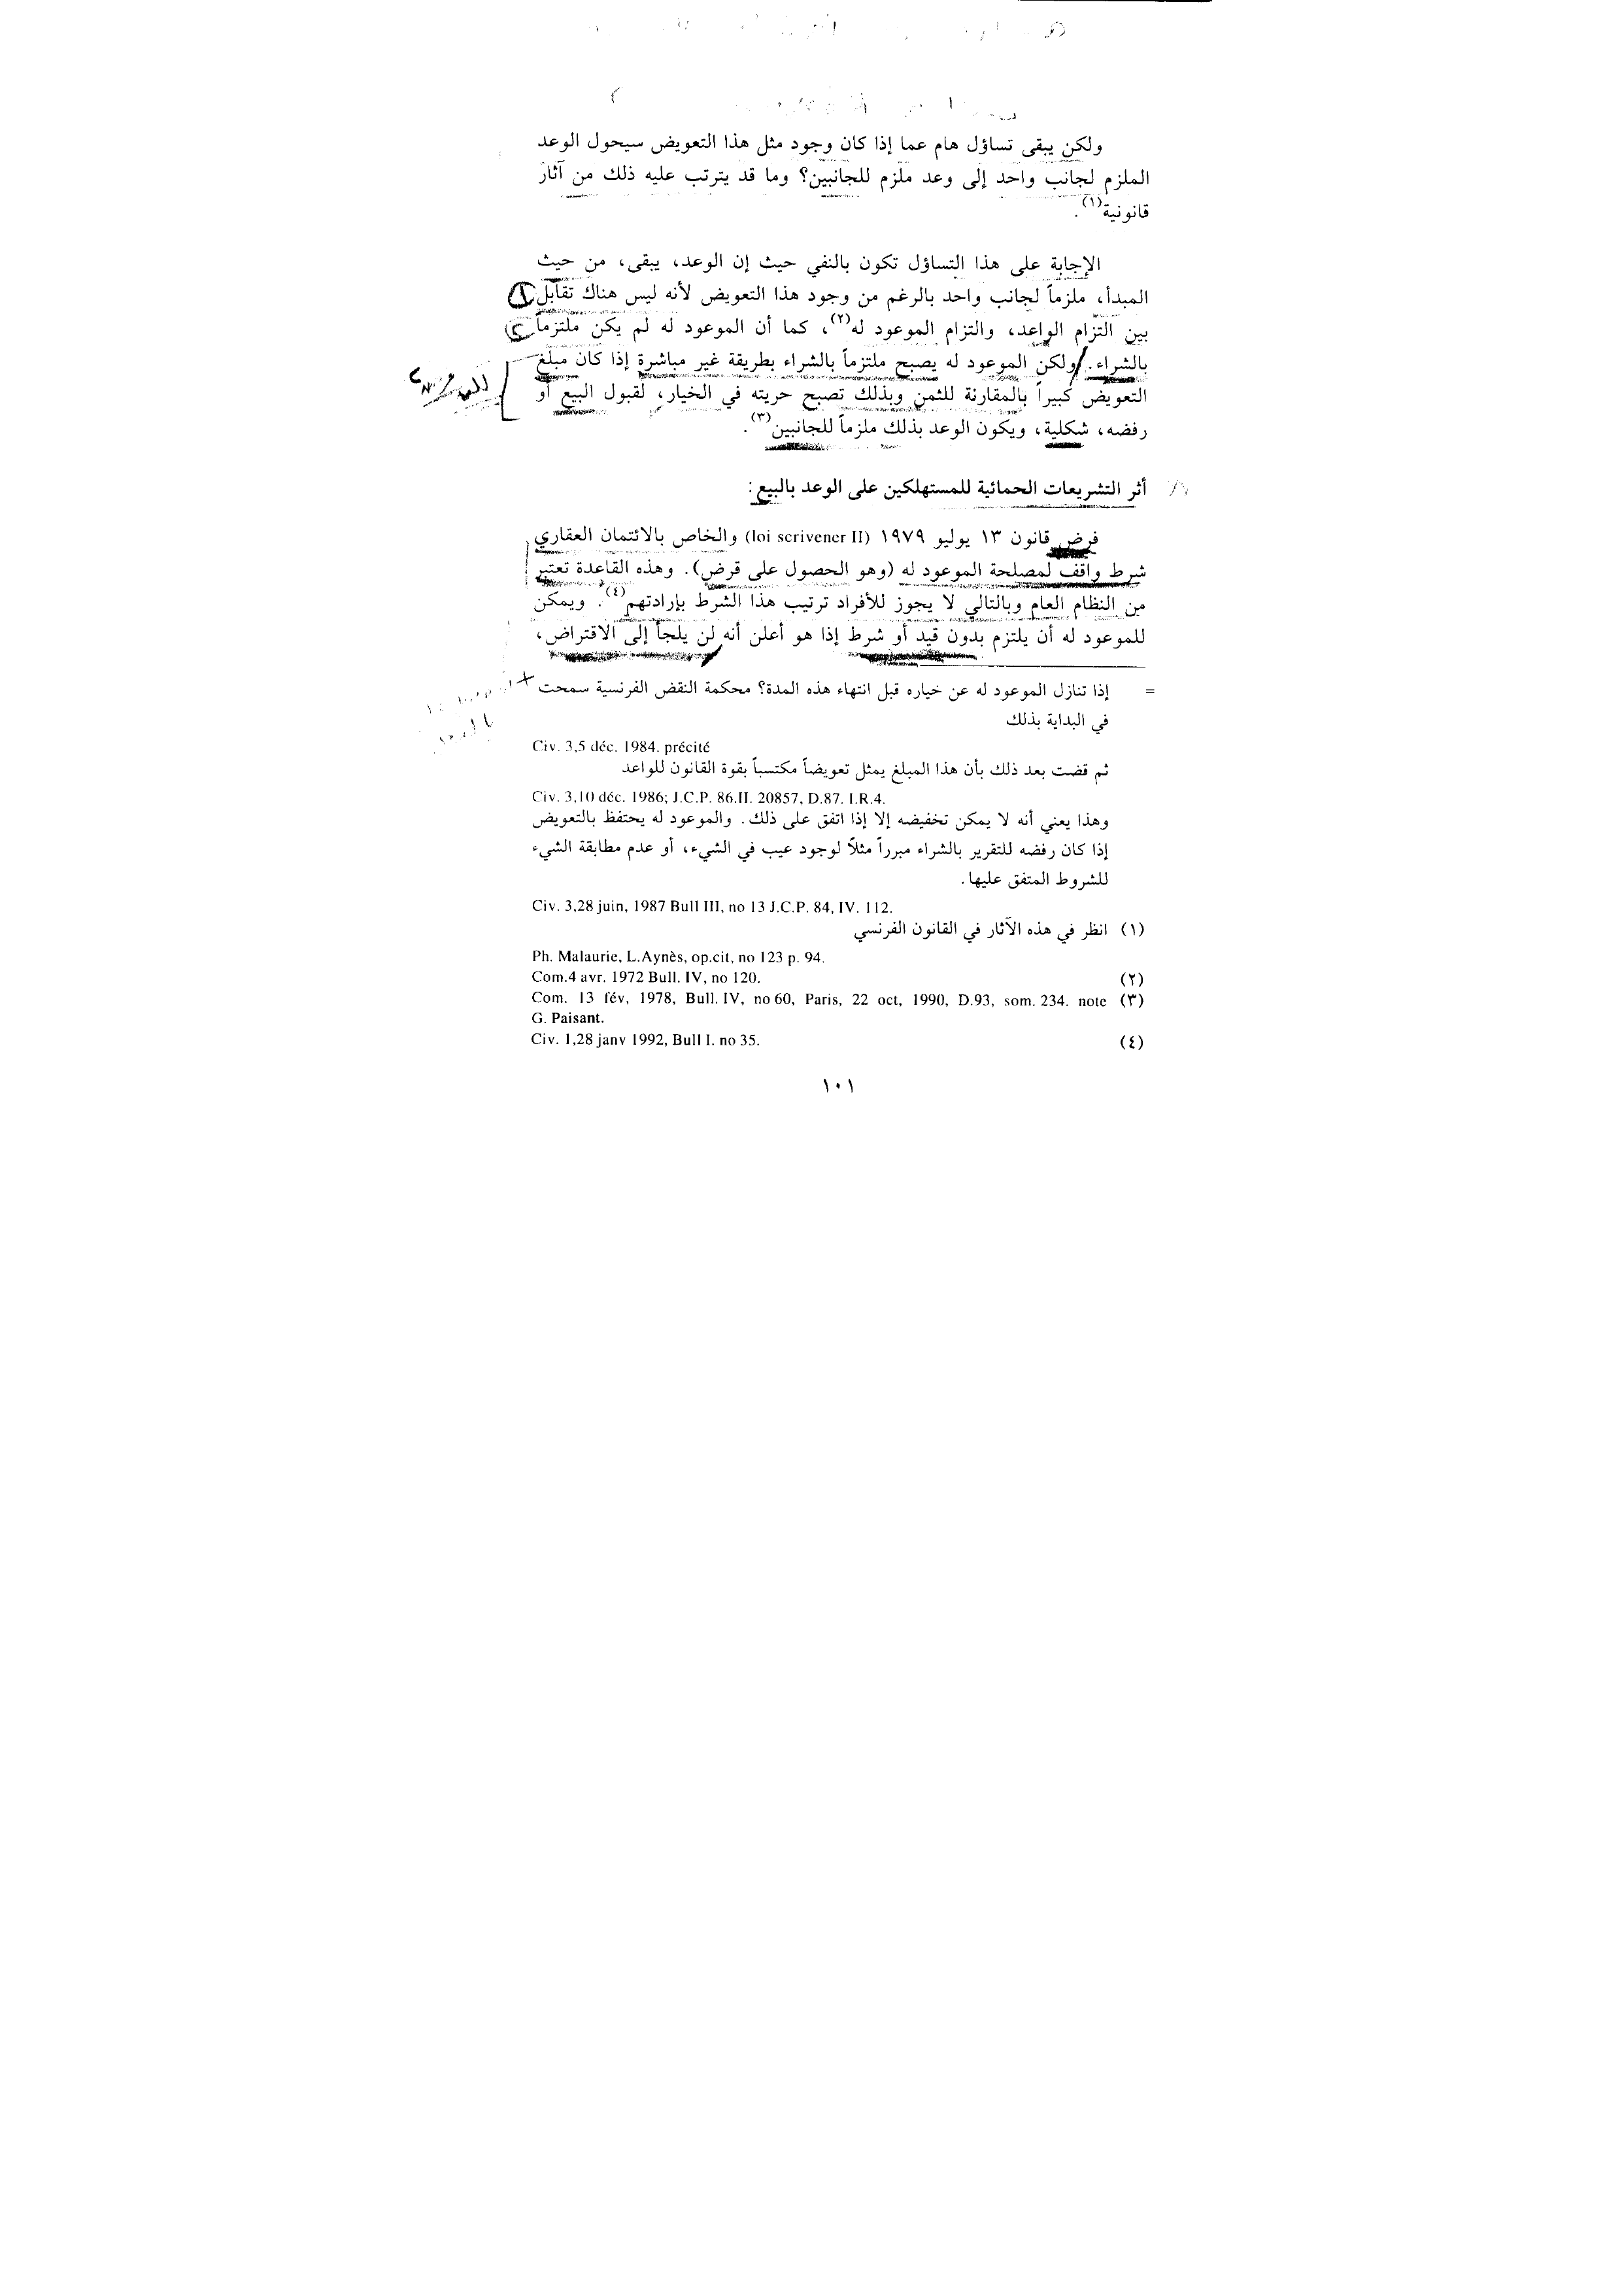 ولكن يبقى تساؤل هام عما إذا كان وجود مثل هذا التعويض سيحول الوعد
الملزم لجانب واحد إلى وعد ملزم للجانبين؟ وما قد يترتب عليه ذلك من آثار
قانونية(١).
الإجابة على هذا التساؤل تكون بالنفي حيث إن الوعد، يبقى، من حيث
المبدأ، ملزماً لجانب واحد بالرغم من وجود هذا التعويض لأنه ليس هناك تقابل
بين التزام الواعد، والتزام الموعود له(٢)، كما أن الموعود له لم يكن ملتزماً
بالشراء. ولكن الموعود له يصبح ملتزماً بالشراء بطريقة غير مباشرة إذا كان مبلغ
التعويض كبيراً بالمقارنة للثمن وبذلك تصبح حريته في الخيار، لقبول البيع أو
رفضه، شكلية، ويكون الوعد بذلك ملزماً للجانبين(٣).
أثر التشريعات الحمائية للمستهلكين على الوعد بالبيع:
فرض قانون ١٣ يوليو ١٩٧٩ (loi scrivener II) والخاص بالائتمان العقاري
شرط واقف لمصلحة الموعود له (وهو الحصول على قرض). وهذه القاعدة تعتبر
من النظام العام وبالتالي لا يجوز للأفراد ترتيب هذا الشرط بإرادتهم(٤). ويمكن
للموعود له أن يلتزم بدون قيد أو شرط إذا هو أعلن أنه لن يلجأ إلى الاقتراض،
= إذا تنازل الموعود له عن خياره قبل انتهاء هذه المدة؟ محكمة النقض الفرنسية سمحت
في البداية بذلك
Civ. 3,5 déc. 1984. précité
ثم قضت بعد ذلك بأن هذا المبلغ يمثل تعويضاً مكتسباً بقوة القانون للواعد
Civ. 3,10 déc. 1986; J.C.P. 86.II. 20857, D.87. I.R.4.
وهذا يعني أنه لا يمكن تخفيضه إلا إذا اتفق على ذلك. والموعود له يحتفظ بالتعويض
إذا كان رفضه للتقرير بالشراء مبرراً مثلاً لوجود عيب في الشيء، أو عدم مطابقة الشيء
للشروط المتفق عليها.
Civ. 3,28 juin, 1987 Bull III, no 13 J.C.P. 84, IV. 112.
(١) انظر في هذه الآثار في القانون الفرنسي
Ph. Malaurie, L.Aynès, op.cit, no 123 p. 94.
Com.4 avr. 1972 Bull. IV, no 120. (٢)
Com. 13 fév, 1978, Bull. IV, no 60, Paris, 22 oct, 1990, D.93, som. 234. note (٣)
G. Paisant.
Civ. 1,28 janv 1992, Bull I. no 35. (٤)
١٠١